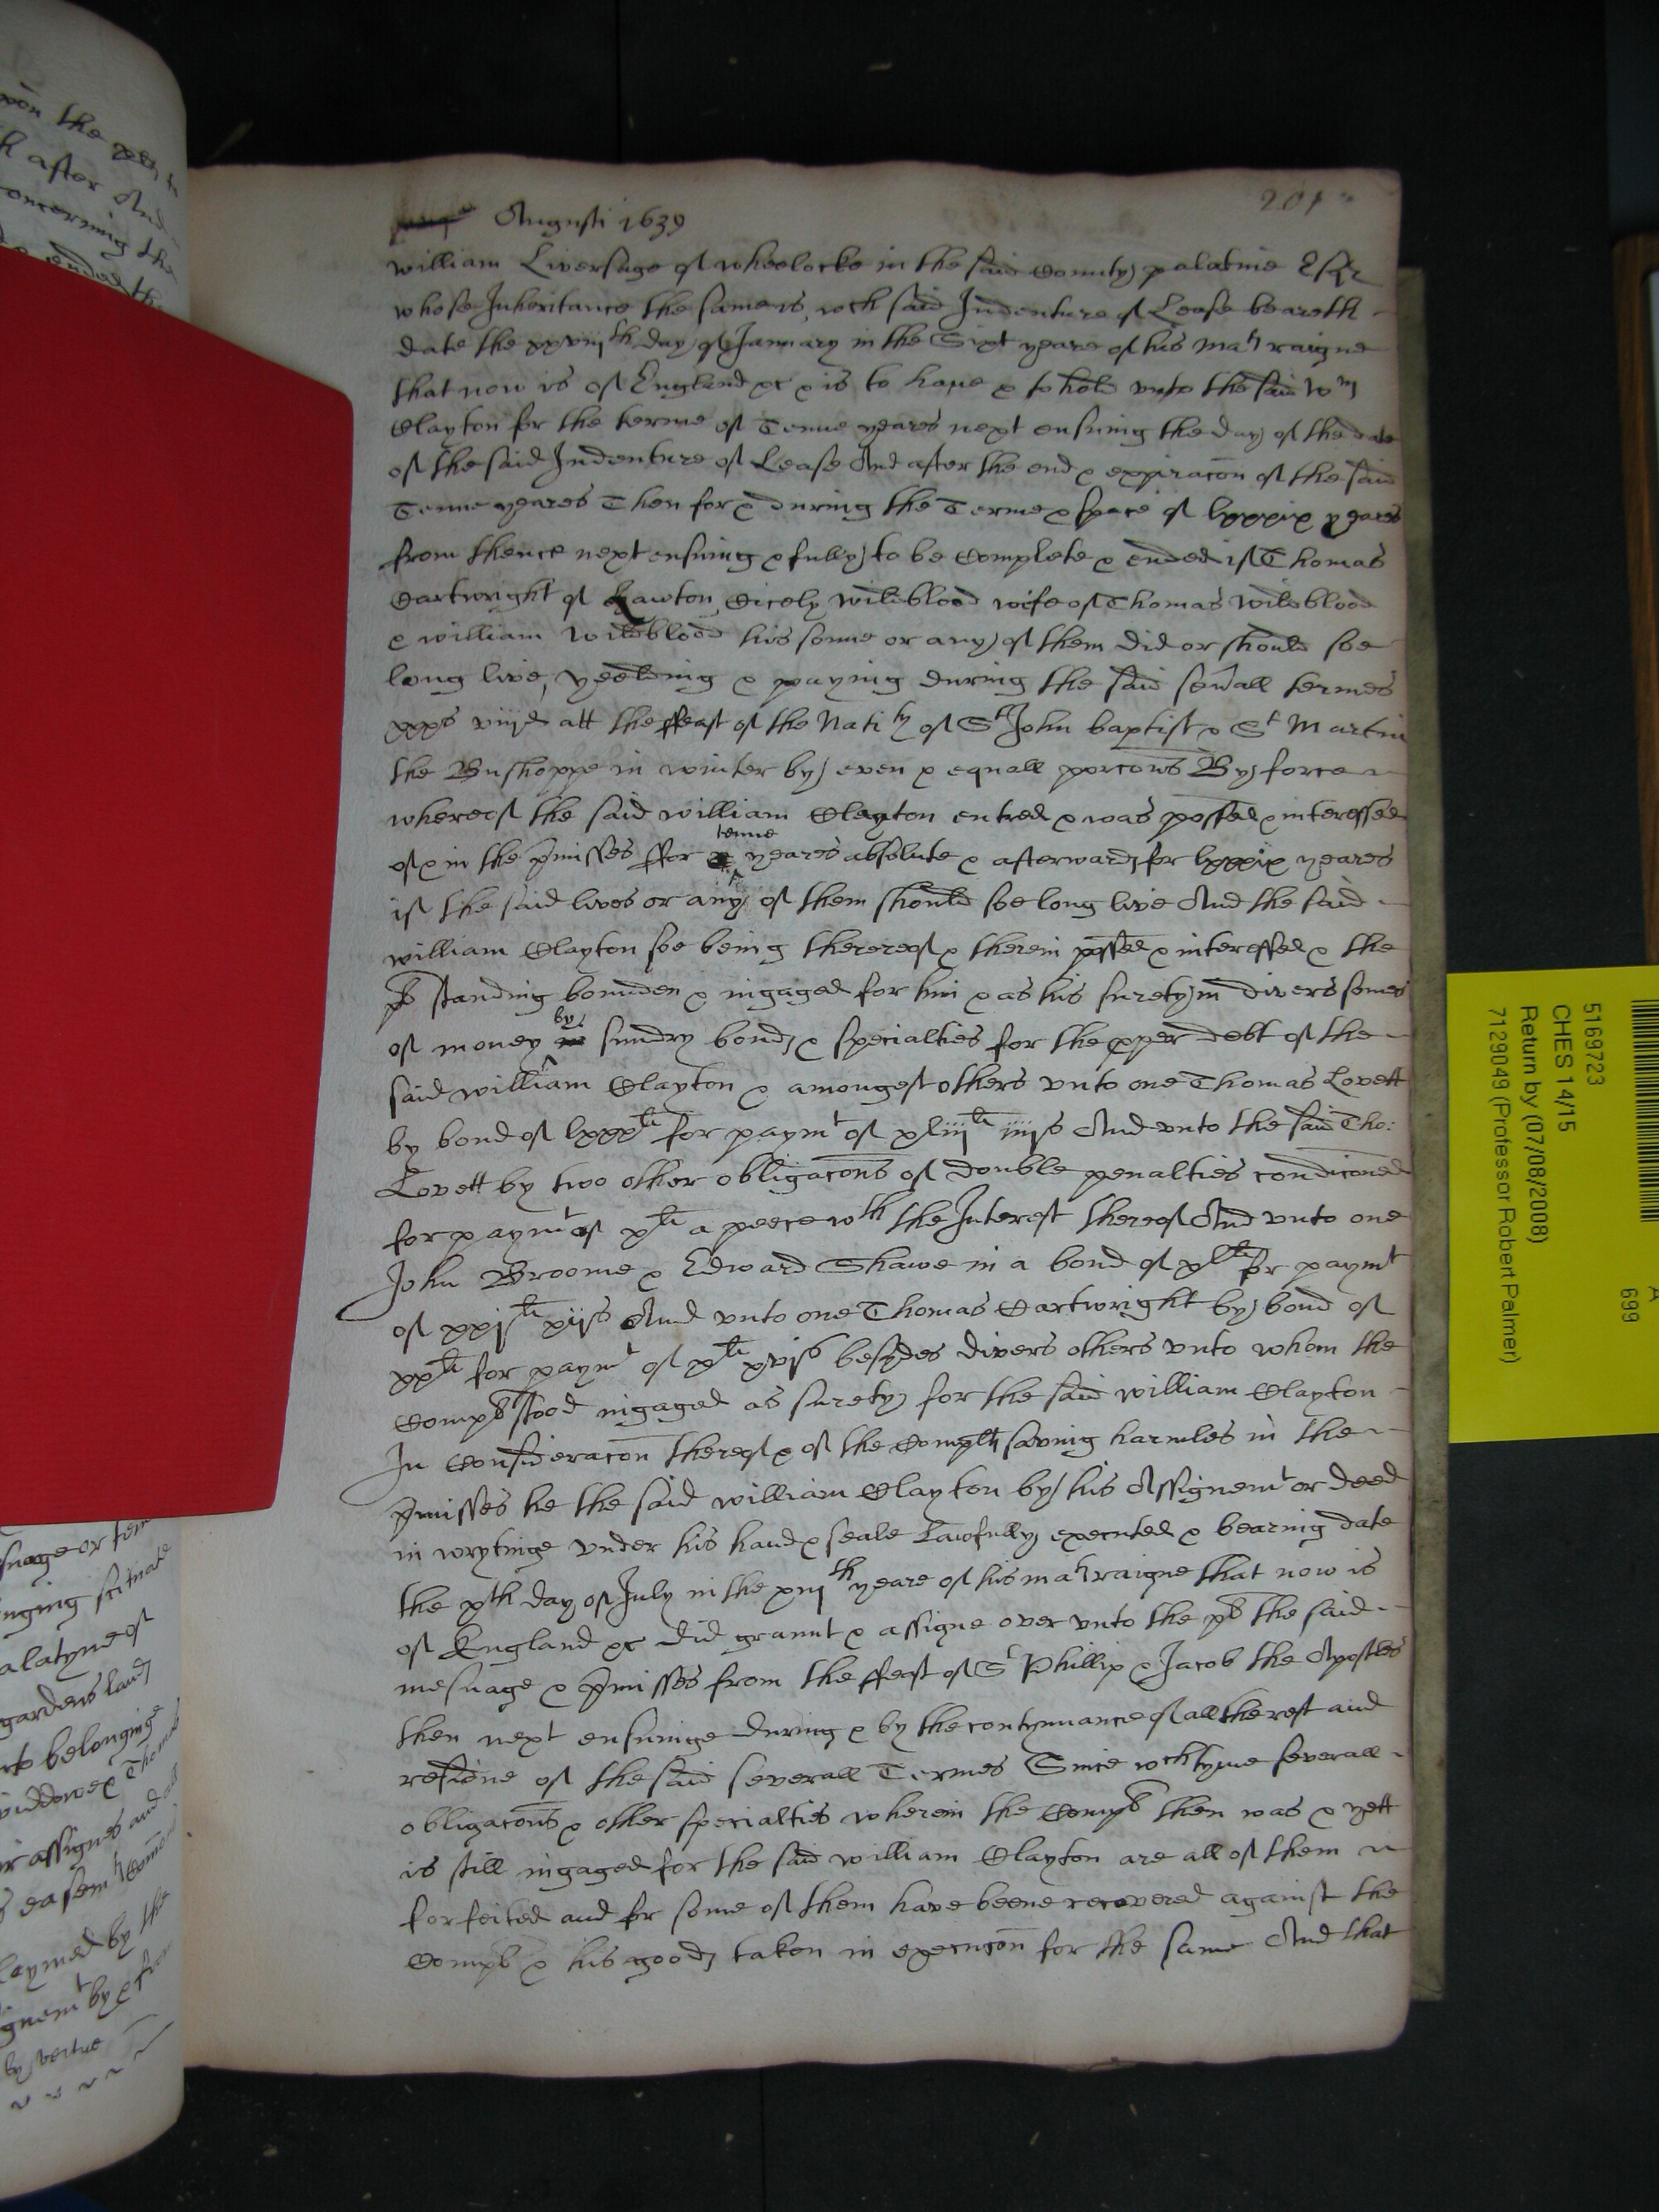 201
Augusti 1639
william Liversage of wheelocke in the said County palatine Esqr
whose Inheritance the same is, wch said Indenture of Lease beareth
date the xxviijth day of January in the Sixt yeare of his Mats raigne
that now is of England &c & is to have & to hold unto the said Wm
Clayton for the terme of Tenne yeares next ensuing the day of the date
of the said Indenture of Lease And after the end & expiracon of the said
Tenne yeares Then for & during the Terme & space of lxxxix yeares
from thence next ensuing & fully to be Complete & ended if Thomas
Cartwright of Lawton, Cicely wildblood wife of Thomas wildblood
& william Wildblood his sonne or any of them did or should soe
long live, yeelding & paying during the said sevall termes
xxxs viijd att the ffeast of the Natity of St John baptist & St Martin
the Bushoppe in winter by even & equall porcons By force
whereof the said william Clayton entred & was possed & interessed
of & in the pmisses ffor tenne yeares absolute & afterwards for lxxxix yeares
if the said lives or any of them should soe long live And the said
william Clayton soe being thereof & therein possed & interessed & the
plt standing bounden & ingaged for him & as his surety in divers somes
of money by sundry bonds & specialties for the pper debt of the
said william Clayton & amongest others unto one Thomas Lovett
by bond of lxxxli for paymt of xliijli iiijs And unto the said Tho:
Lovett by two other obligacons of double penalties condiconed
for paymt of xli a peece wth the Interest thereof And unto one
John Broome & Edward Shawe in a bond of xlli for paymt
of xxjli xijs And unto one Thomas Cartwright by bond of
xxli for paymt of xli xvjs besydes divers others unto whom the
Complt stood ingaged as surety for the said william Clayton
In Consideracon thereof & of the Complts saving harmles in the
pmisses he the said william Clayton by his Assignemt or deed
in wrytinge under his hand & seale Lawfully executed & bearing date
the xth day of July in the xiijth yeare of his mats raigne that now is
of England &c did graunt & assigne over unto the plt the said
mesuage & pmisses from the ffeast of St Phillip & Jacob the Apostles
then next ensuinge during & by the contynuance of all the rest and
residue of the said severall Termes Since wch tyme severall
obligacons & other specialties wherein the Complt then was & yett
is still ingaged for the said william Clayton are all of them
forfeited and for some of them have beene recovered against the
Complt & his goods taken in execucon for the same And that
upon the
after And
concerning the
suage or
nging scituate
alatyne of
gardens lands
to belonginge
widdowe & Thomas
ir assignes and
easemts
laymed by the
gnemt by &
by vertue
5169723
CHES 14/15
Return by (07/08/2008)
7129049 (Professor Robert Palmer)
699